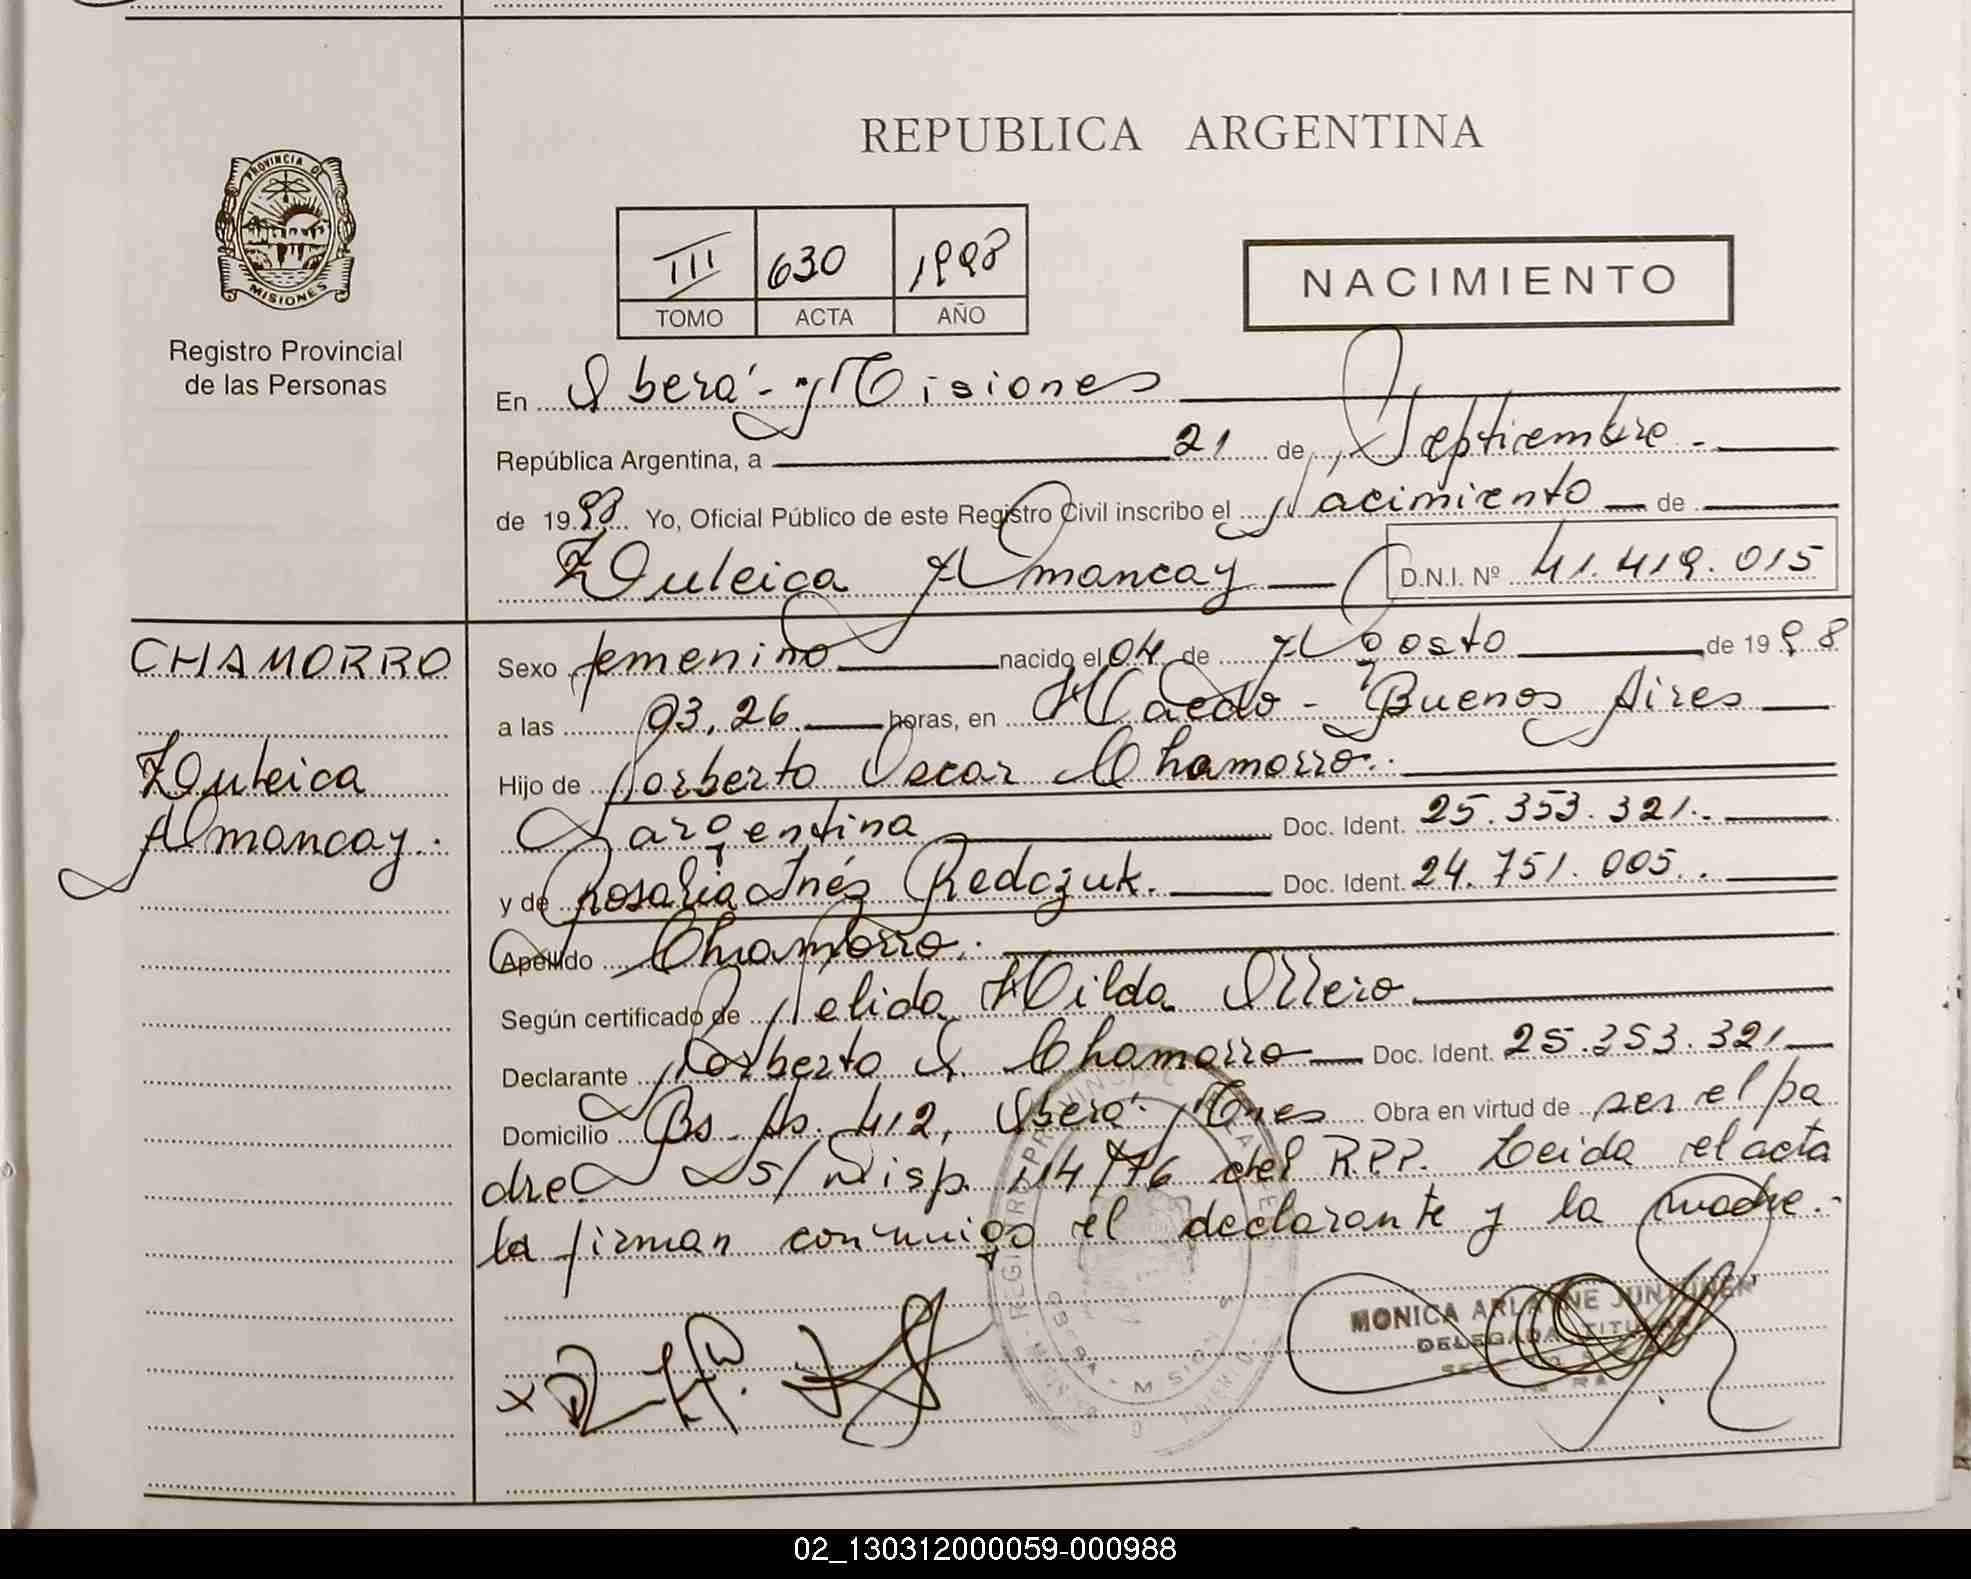 REPUBLICA ARGENTINA
PROVINCIA DE
MISIONES
Registro Provincial
de las Personas
III 630 1998
TOMO ACTA AÑO
NACIMIENTO
En Oberá - Misiones
República Argentina, a 21 de Septiembre -
de 1998 Yo, Oficial Público de este Registro Civil inscribo el Nacimiento de
Zuleica Amancay D.N.I. Nº 41.419.015
CHAMORRO
Zuleica
Amancay.-
Sexo femenino nacido el 04 de Agosto de 1998
a las 03,26 horas, en Haedo - Buenos Aires
Hijo de Norberto Oscar Chamorro.-
argentina Doc. Ident. 25.353.321.-
y de Rosalia Inéz Redczuk. Doc. Ident. 24.751.005.-
Apellido Chamorro.-
Según certificado de Nelida Hilda
Declarante Norberto O. Chamorro Doc. Ident. 25.353.321
Domicilio Bs. As. 412, Oberá Mnes Obra en virtud de ser el pa
dre S/Disp. 114/76 del R.P.P. Leida el acta
la firman conmigo el declarante y la madre.-
MONICA ARLAINE JUNTUNEN
DELEGADA TITULAR
02_130312000059-000988